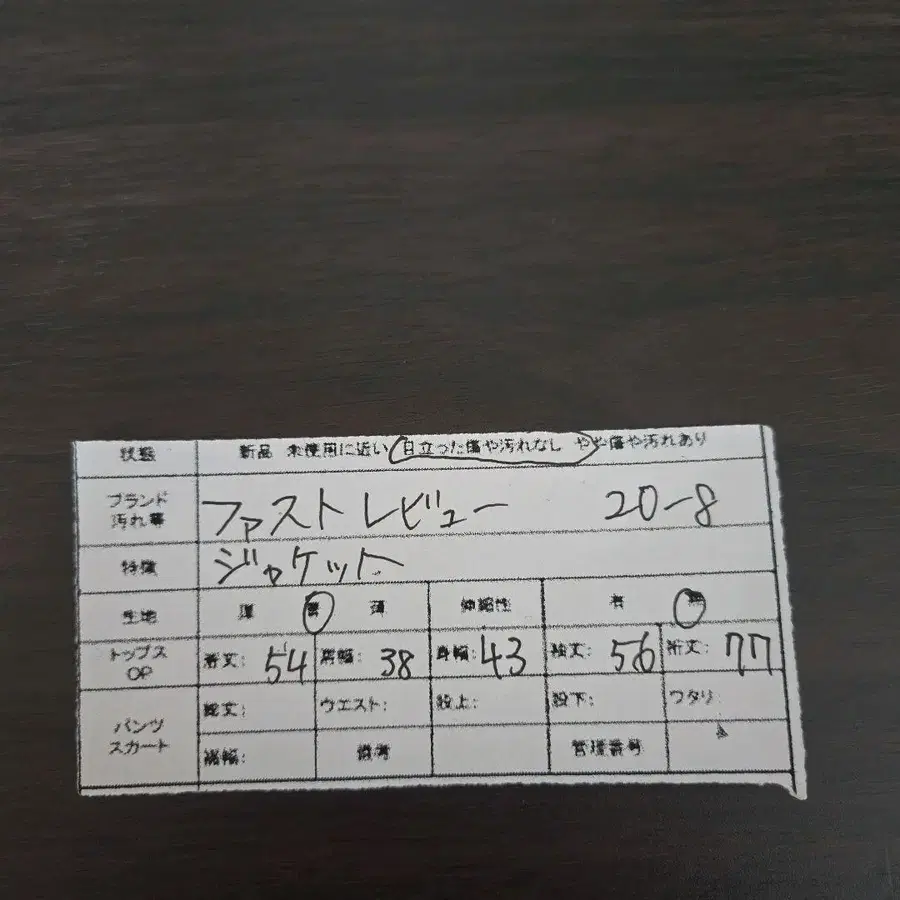 状態 新品 未使用に近い 目立った傷や汚れなし やや傷や汚れあり
ブランド 汚れ等 ファストレビュー 20-8
特徴 ジャケット
生地 厚 普 薄 伸縮性 有 無
トップス OP 着丈: 54 肩幅: 38 身幅: 43 袖丈: 56 裄丈: 77
パンツ スカート 総丈: ウエスト: 股上: 股下: ワタリ:
裾幅: 備考 管理番号